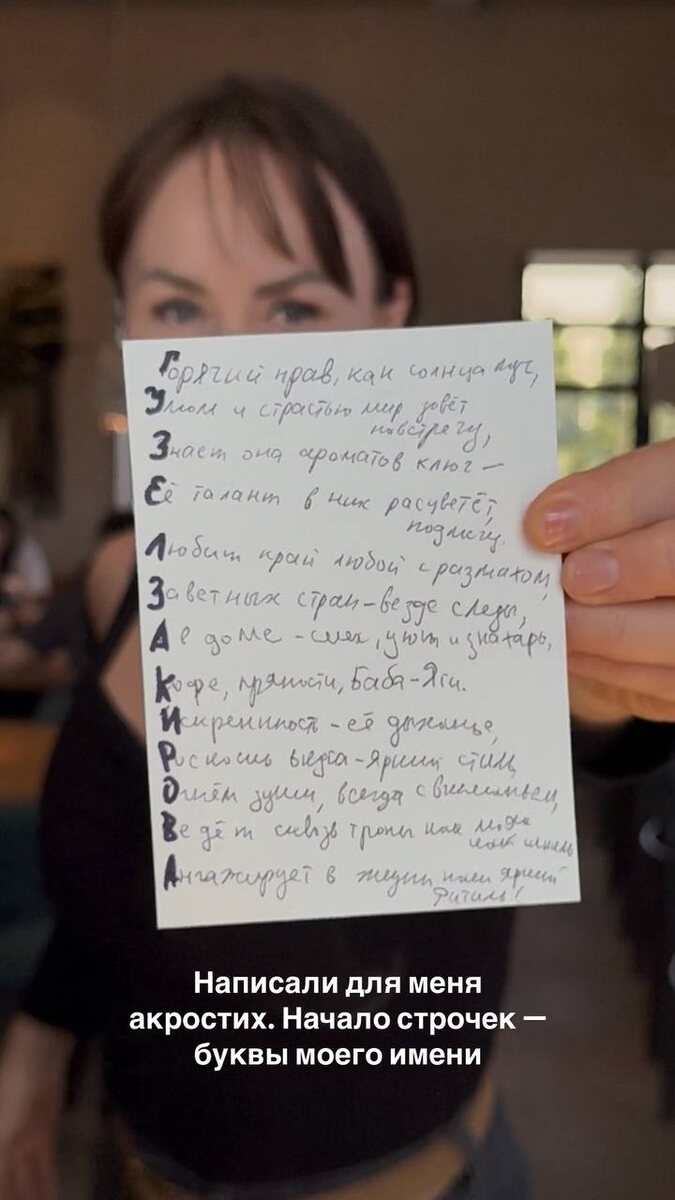 Горячий нрав, как солнца луч,
Умом и страстью мир зовёт
навстречу,
Знает она ароматов ключ —
Её талант в них расцветёт,
подмечу.
Любит край любой с размахом,
Заветных стран – везде следы,
А в доме – смех, уют и знахарь,
Кофе, пряности, Баба-Яги.
Искренность – её дыханье,
Роскошь вкуса – яркий стиль,
Огнём души, всегда с вниманьем,
Ведёт сквозь тропы как
Ангажирует в жизни яркий
фитиль!
Написали для меня
акростих. Начало строчек —
буквы моего имени